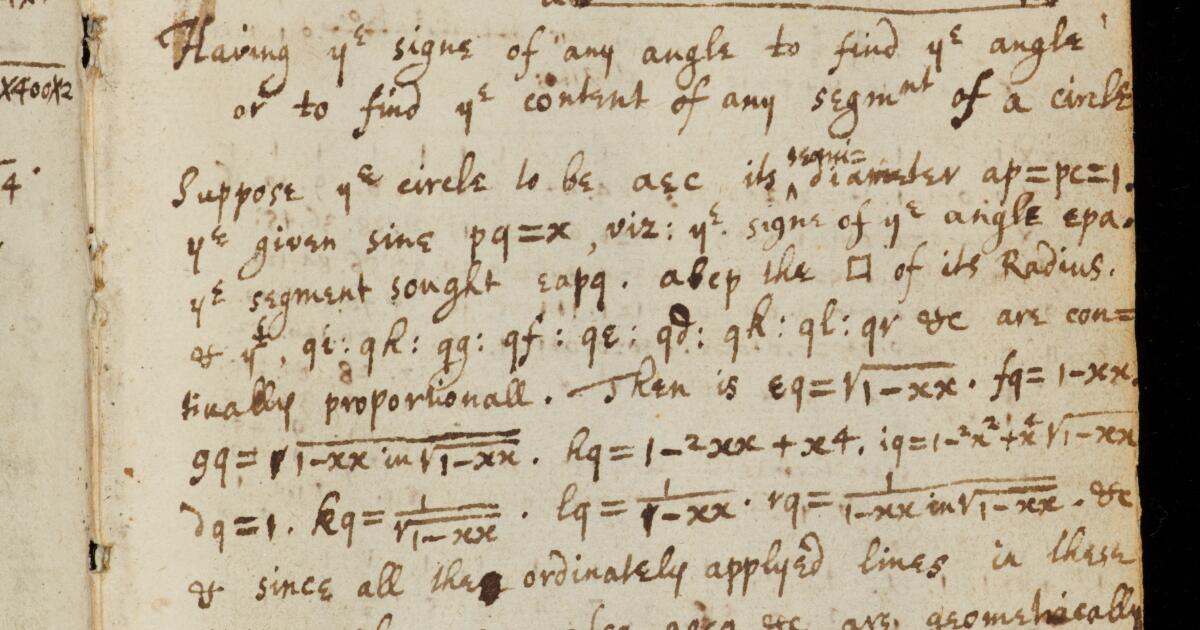 x400x2
4.
Having yᵉ signe of any angle to find yᵉ angle
or to find yᵉ content of any segmⁿᵗ of a circle
Suppose yᵉ circle to be aec its semi=diameter ap=pc=1.
yᵉ given sine pq=x, viz: yᵉ signe of yᵉ angle epa.
yᵉ segment sought eapq. abep the □ of its Radius.
& yᵗ, qi: qh: qg: qf: qe: qd: qk: ql: qr &c are con=
tinually proportionall. Then is eq=√1-xx. fq=1-xx.
gq=√1-xx in √1-xx. hq=1-2xx+x4. iq=1-2x²+x⁴√1-xx
dq=1. kq=1/√1-xx. lq=1/1-xx. rq=1/1-xx in √1-xx. &c
& since all the ordinately applyed lines in these
&c. are geometrically